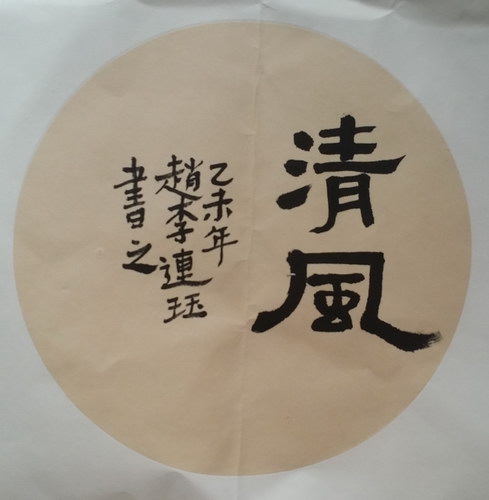 清風
乙未年
趙李連珏
書之